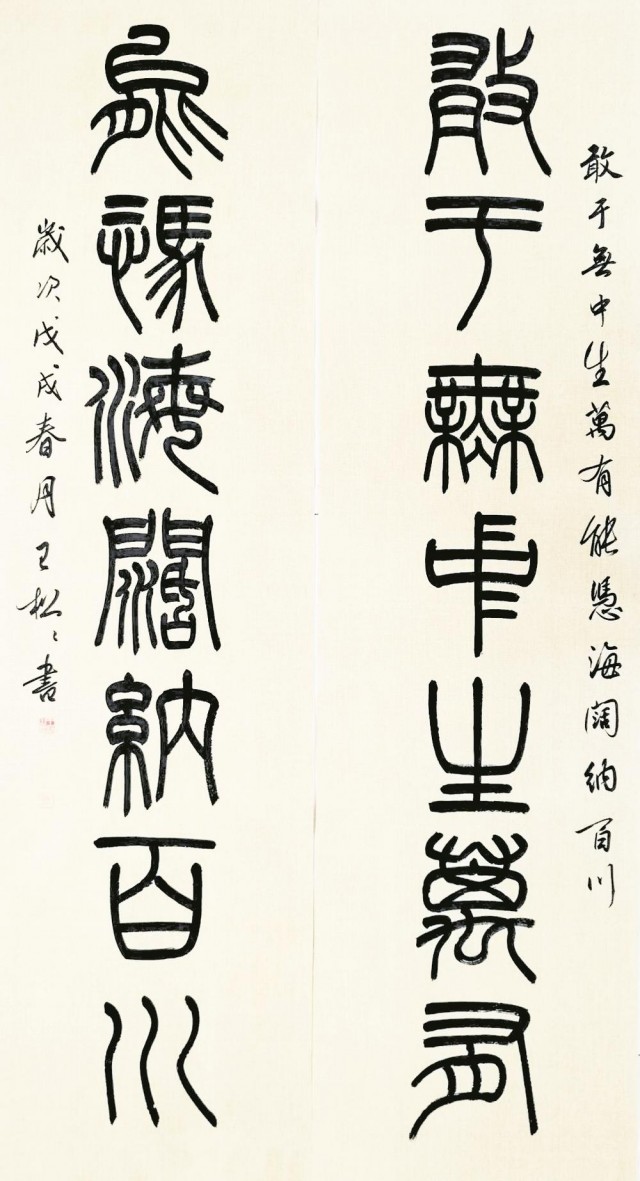 敢于無中生萬有能憑海闊納百川
敢于無中生萬有
能憑海闊納百川
歲次戊戌春月王松〻書